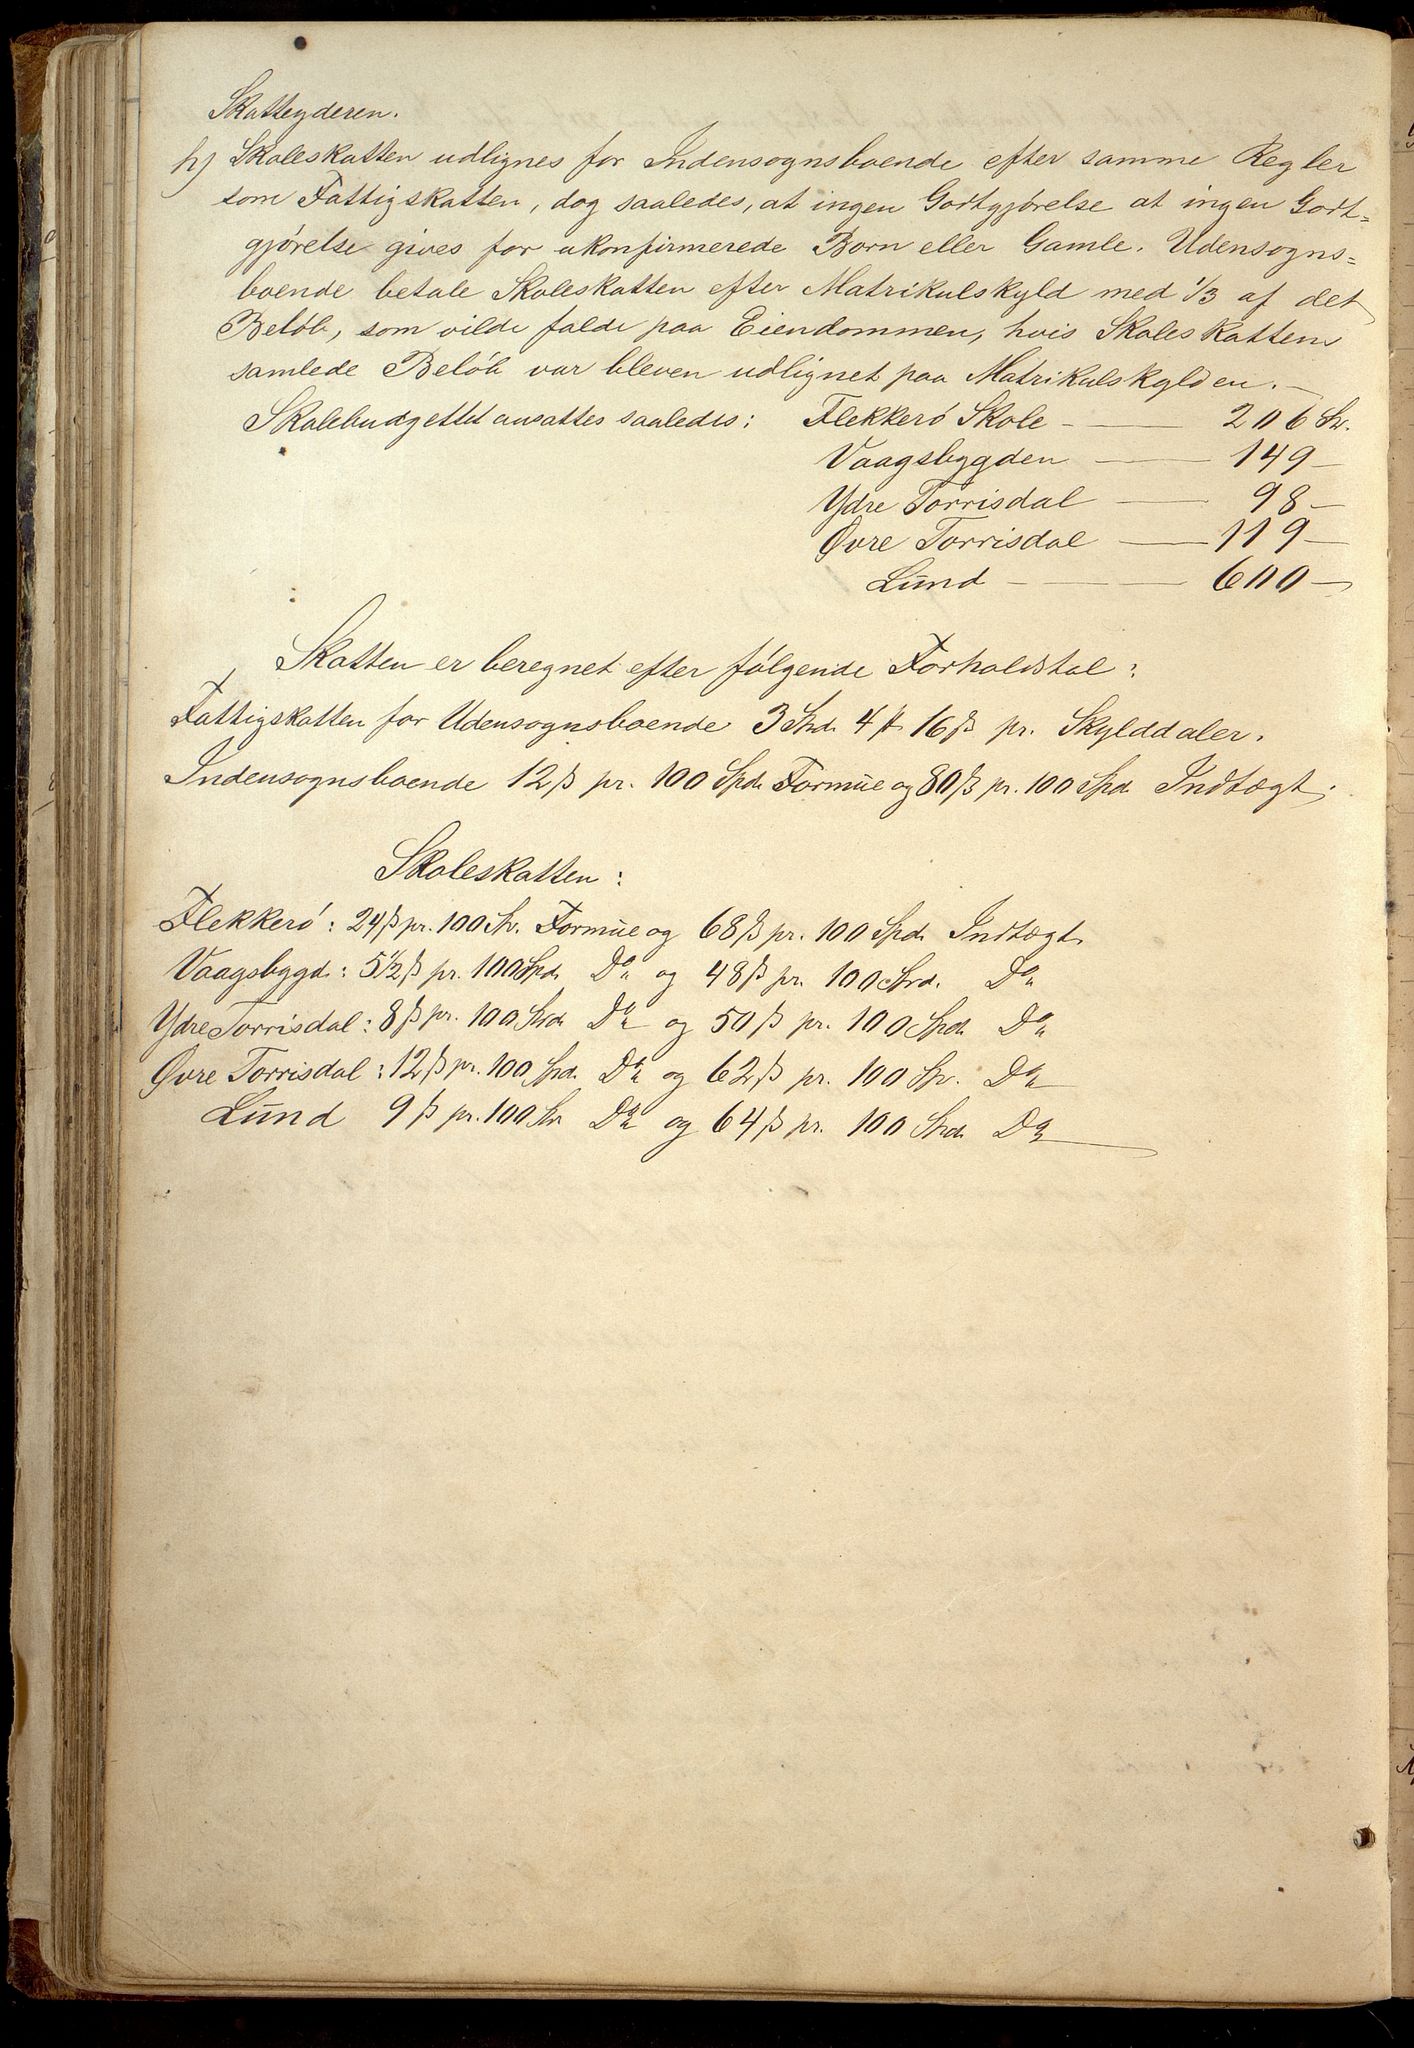 Skatteyderen.
h) Skoleskatten udlignes for Indensognsboende efter samme Regler
som Fattigskatten, dog saaledes, at ingen Godtgjørelse at ingen Godt=
gjørelse gives for ukonfirmerede Børn eller Gamle. Udensogns=
boende betale Skoleskatten efter Matrikulskyld med 1/3 af det
Beløb, som vilde falde paa Eiendommen, hvis Skoleskattens
samlede Beløb var bleven udlignet paa Matrikulskylden. —
Skolebudgettet ansattes saaledes: Flekkerø Skole — 206 Sp.
Vaagsbygden — 149 —
Ydre Torrisdal — 98 —
Øvre Torrisdal — 119 —
Lund — 600 —
Skatten er beregnet efter følgende Forholdstal:
Fattigskatten for Udensognsboende 3 Spd. 4 ꝑ 16 ß pr. Skylddaler.
Indensognsboende 12 ß pr. 100 Spd. Formue og 80 ß pr. 100 Spd. Indtægt.
Skoleskatten:
Flekkerø: 24 ß pr. 100 Sp. Formue og 68 ß pr. 100 Spd. Indtægt.
Vaagsbygd: 5 1/2 ß pr. 100 Spd. Do og 48 ß pr. 100 Spd. Do
Ydre Torrisdal: 8 ß pr. 100 Spd. Do og 50 ß pr. 100 Spd. Do
Øvre Torrisdal: 12 ß pr. 100 Spd. Do og 62 ß pr. 100 Sp. Do
Lund 9 ß pr. 100 Sp. Do og 64 ß pr. 100 Spd. Do